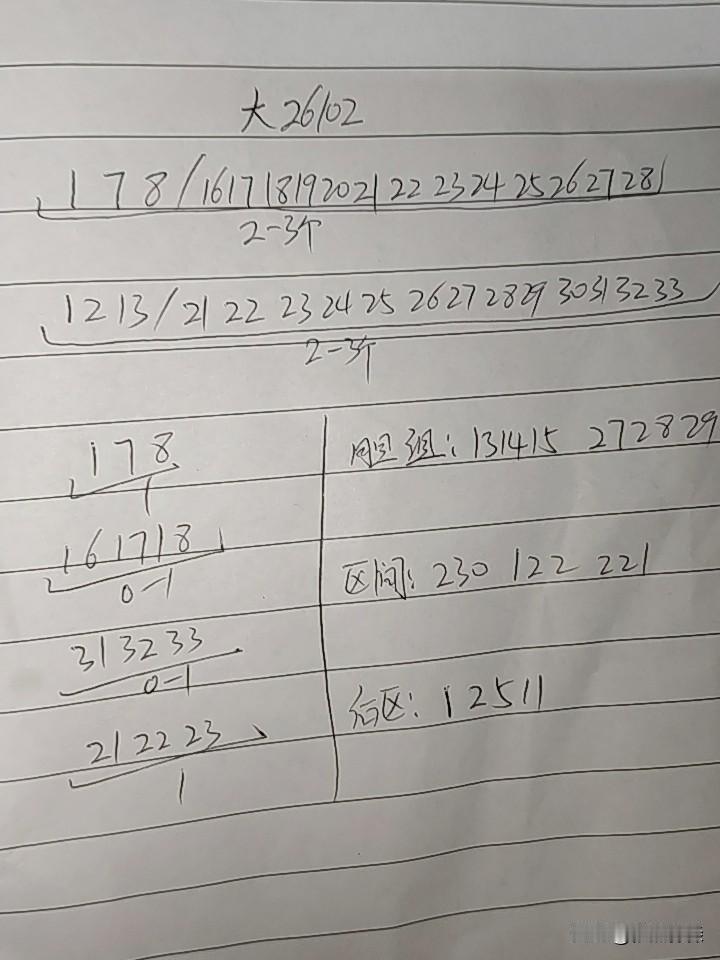 大26102
1 7 8/16 17 18 19 20 21 22 23 24 25 26 27 28
2-3个
12 13/21 22 23 24 25 26 27 28 29 30 31 32 33
2-3个
1 7 8
1
16 17 18
0-1
31 32 33
0-1
21 22 23
1
胆组:13 14 15 27 28 29
区间:230 122 221
后区:1 2 5 11